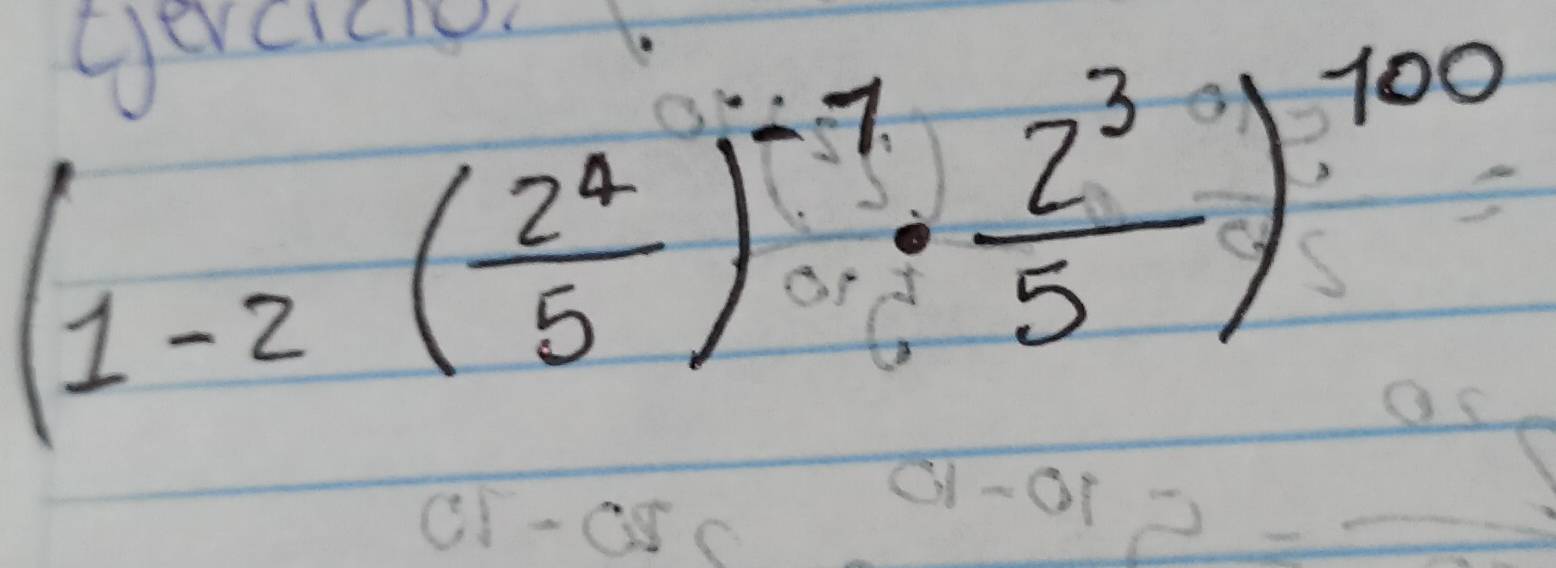 Ejercicio.
(1 - 2 (2⁴/5)⁻¹ · 2³/5)¹⁰⁰